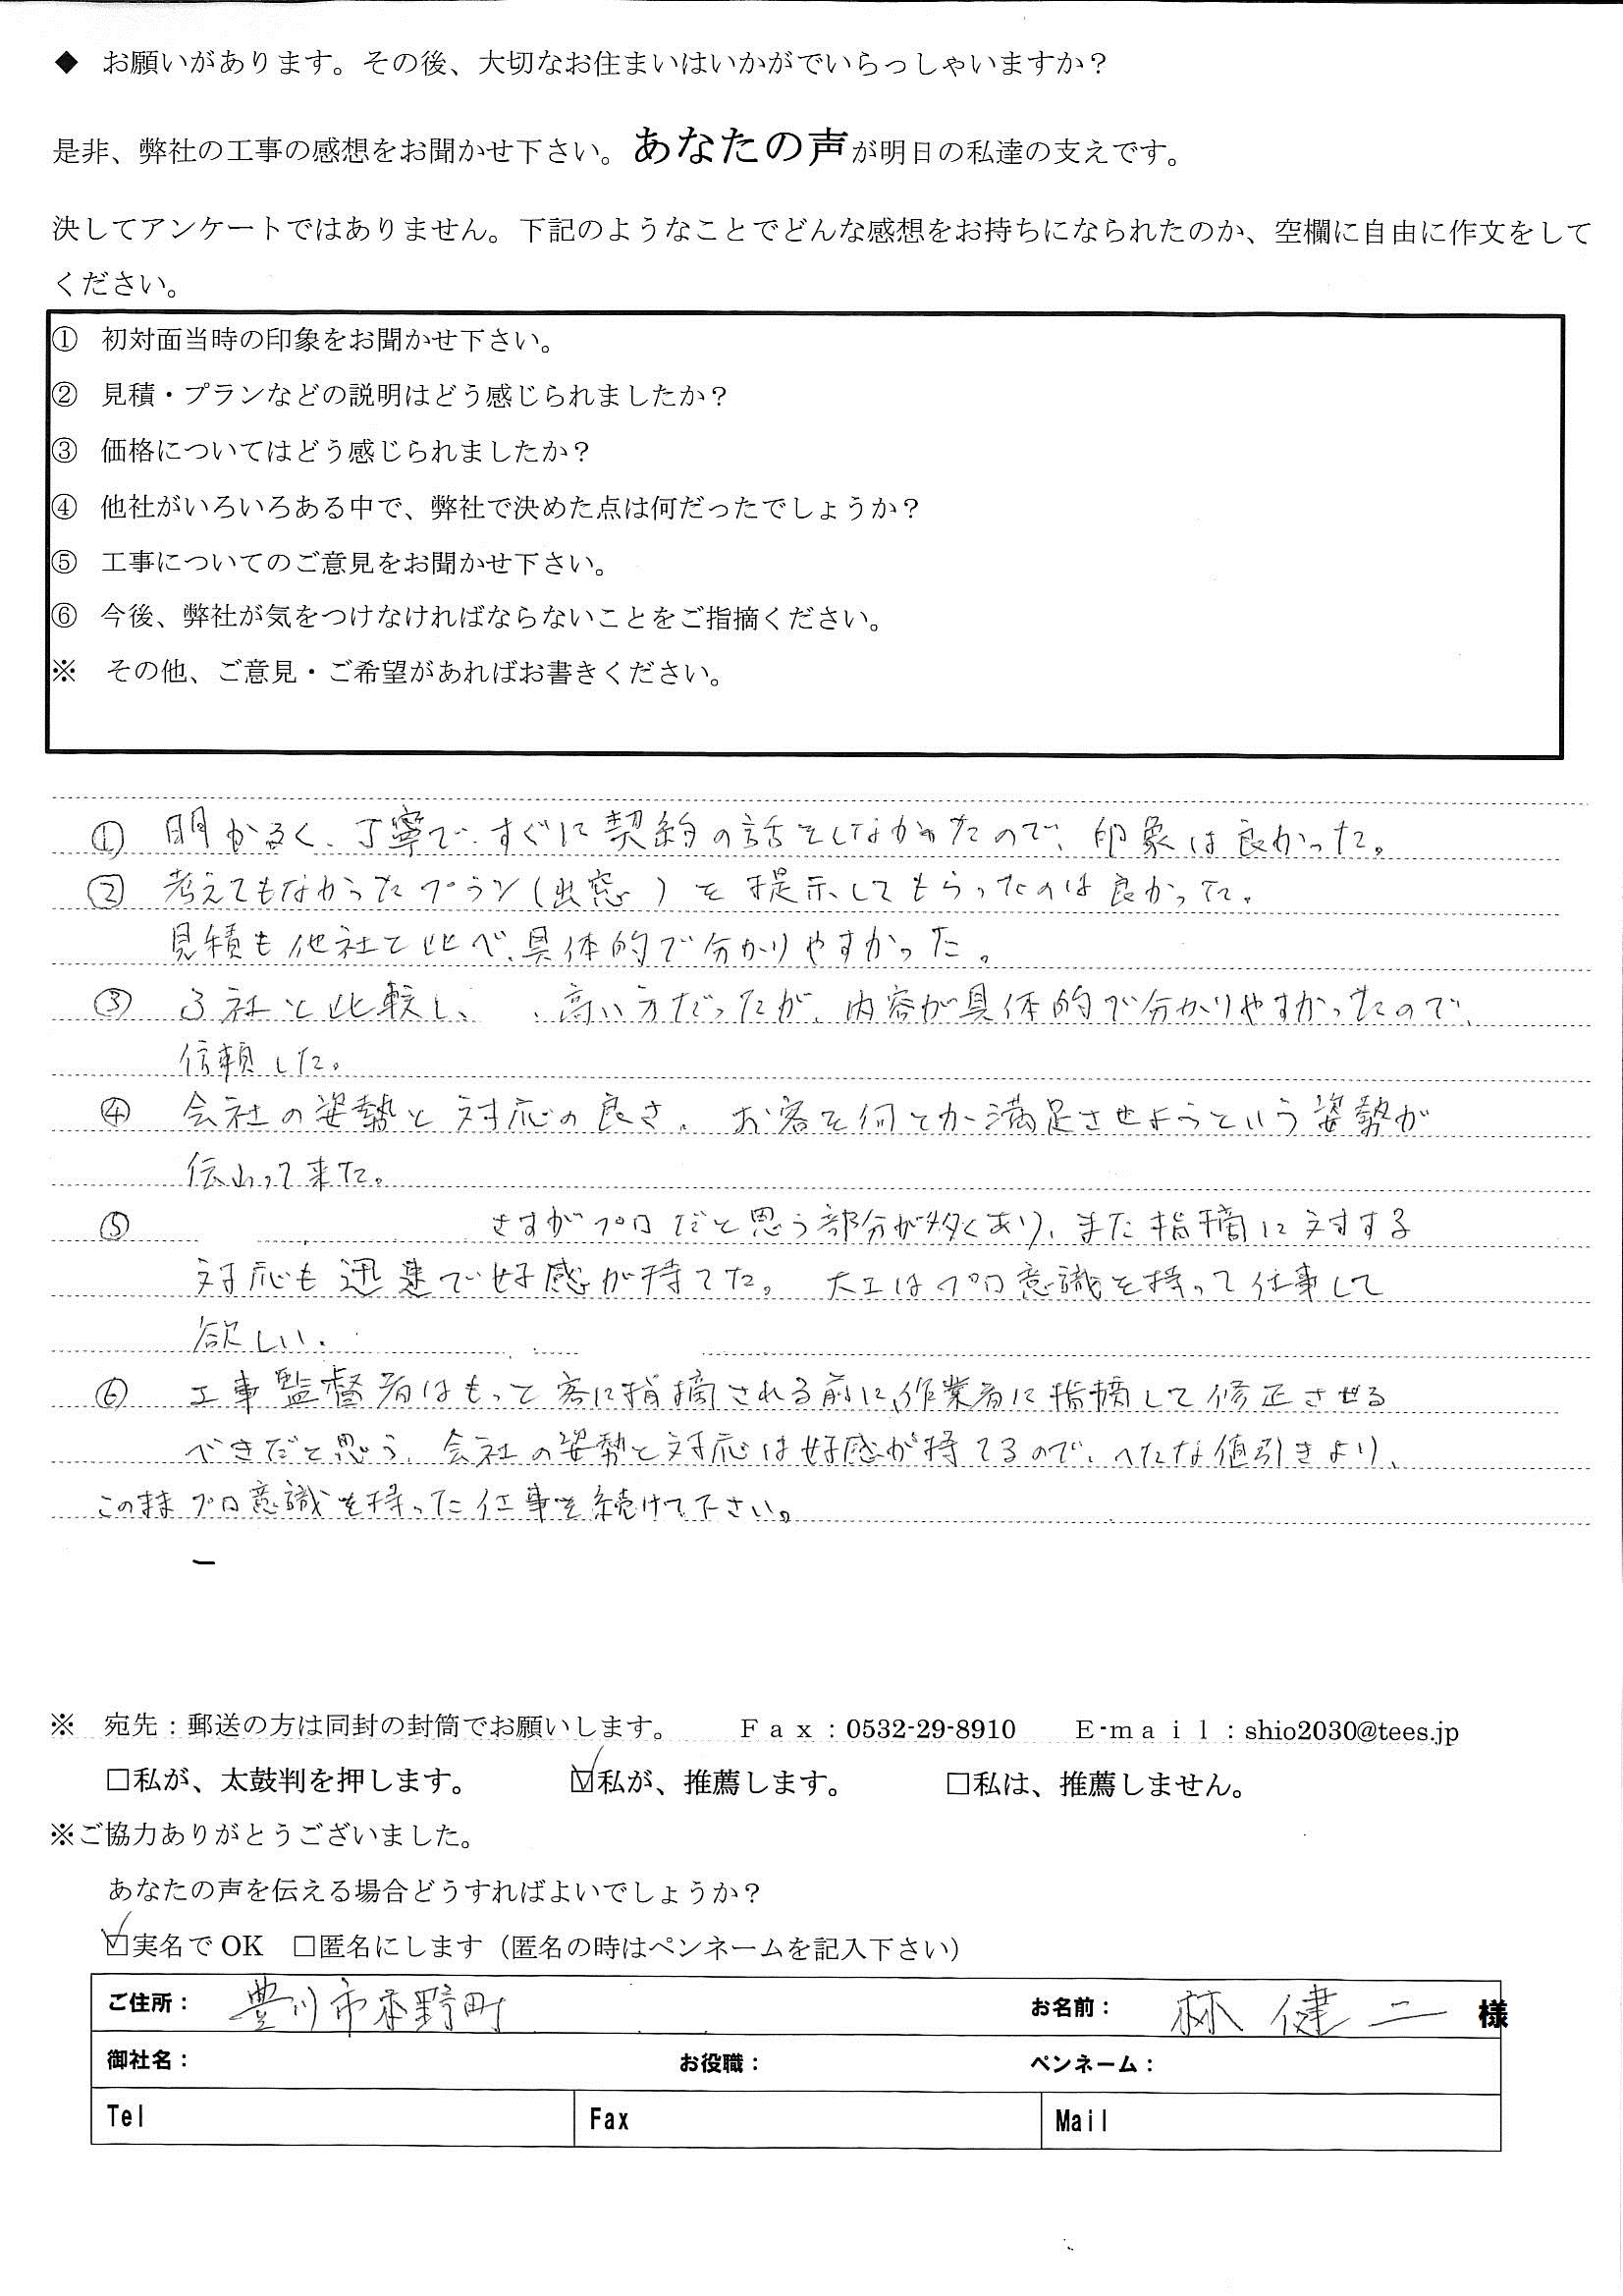 ◆ お願いがあります。その後、大切なお住まいはいかがでいらっしゃいますか？
是非、弊社の工事の感想をお聞かせ下さい。あなたの声が明日の私達の支えです。
決してアンケートではありません。下記のようなことでどんな感想をお持ちになられたのか、空欄に自由に作文をして
ください。
① 初対面当時の印象をお聞かせ下さい。
② 見積・プランなどの説明はどう感じられましたか？
③ 価格についてはどう感じられましたか？
④ 他社がいろいろある中で、弊社で決めた点は何だったでしょうか？
⑤ 工事についてのご意見をお聞かせ下さい。
⑥ 今後、弊社が気をつけなければならないことをご指摘ください。
※ その他、ご意見・ご希望があればお書きください。
① 明かるく、丁寧で、すぐに契約の話をしなかったので、印象は良かった。
② 考えてもなかったプラン(出窓)を提示してもらったのは良かった。
見積も他社と比べ、具体的で分かりやすかった。
③ 3社と比較し、高い方だったが、内容が具体的で分かりやすかったので、
信頼した。
④ 会社の姿勢と対応の良さ。お客を何とか満足させようという姿勢が
伝わって来た。
⑤ さすがプロだと思う部分が多くあり、また指摘に対する
対応も迅速で好感が持てた。大工はプロ意識を持って仕事して
欲しい。
⑥ 工事監督者はもっと客に指摘される前に、作業者に指摘して修正させる
べきだと思う。会社の姿勢と対応は好感が持てるので、へたな値引きより、
このままプロ意識を持った仕事を続けて下さい。
※ 宛先：郵送の方は同封の封筒でお願いします。 Ｆａｘ：0532-29-8910 Ｅ-ｍａｉｌ：shio2030@tees.jp
□私が、太鼓判を押します。 ☑私が、推薦します。 □私は、推薦しません。
※ご協力ありがとうございました。
あなたの声を伝える場合どうすればよいでしょうか？
☑実名でOK □匿名にします（匿名の時はペンネームを記入下さい）
ご住所： 豊川市 お名前： 林 健二 様
御社名： お役職： ペンネーム：
Tel Fax Mail